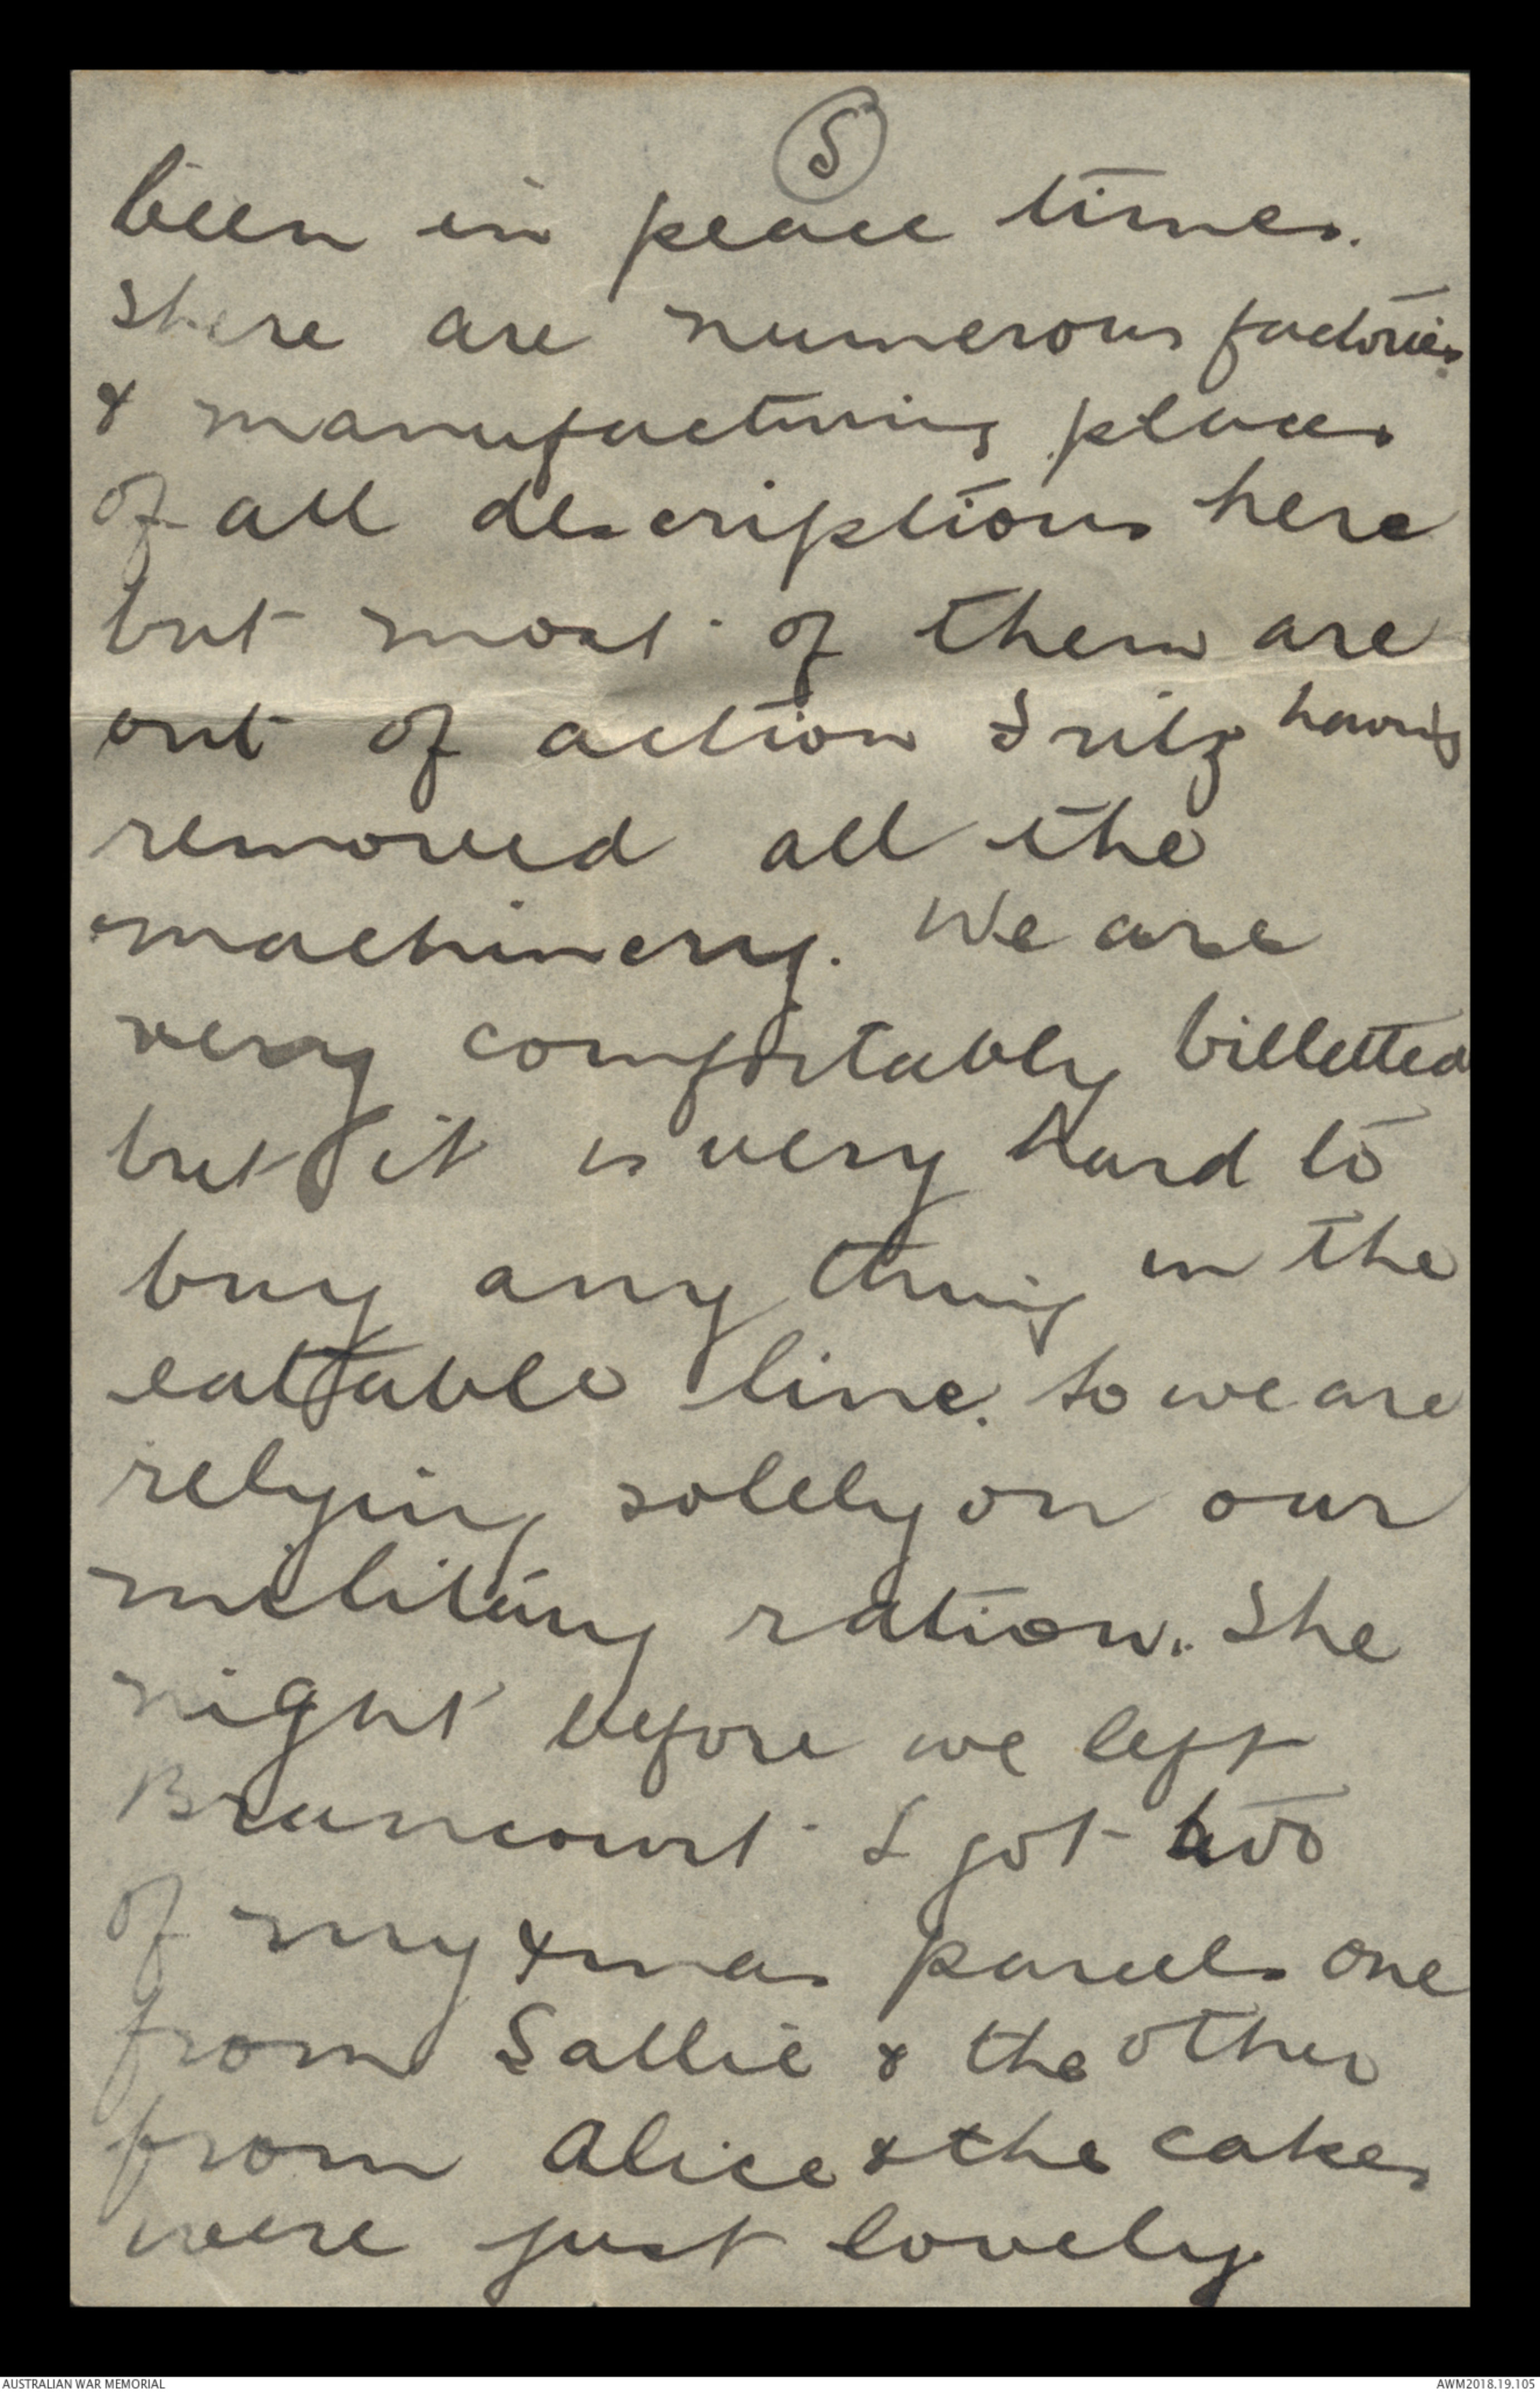 5
been in peace times.
There are numerous factories
& manufacturing places
of all descriptions here
but most of them are
out of action Fritz having
removed all the
machinery. We are
very comfortably billetted
but it is very hard to
buy any thing in the
eattable line. So we are
relying solely on our
military ration. The
night before we left
Brancourt I got two
of my xmas parcels one
from Sallie & the other
from Alice & the cakes
were just lovely.
AUSTRALIAN WAR MEMORIAL
AWM2018.19.105